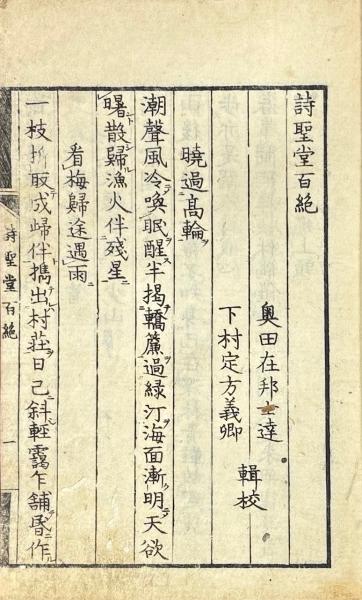 詩聖堂百絶
奥田在邦士達
下村定方義卿
輯校
暁過高輪ヲ
潮聲風冷喚眠醒半掲轎簾過緑汀海面漸明天欲
曙散歸漁火伴殘星
看梅歸途遇雨
一枝折取成歸伴擕出村荘日已斜輕靄乍舗昏作
詩聖堂百絶
一